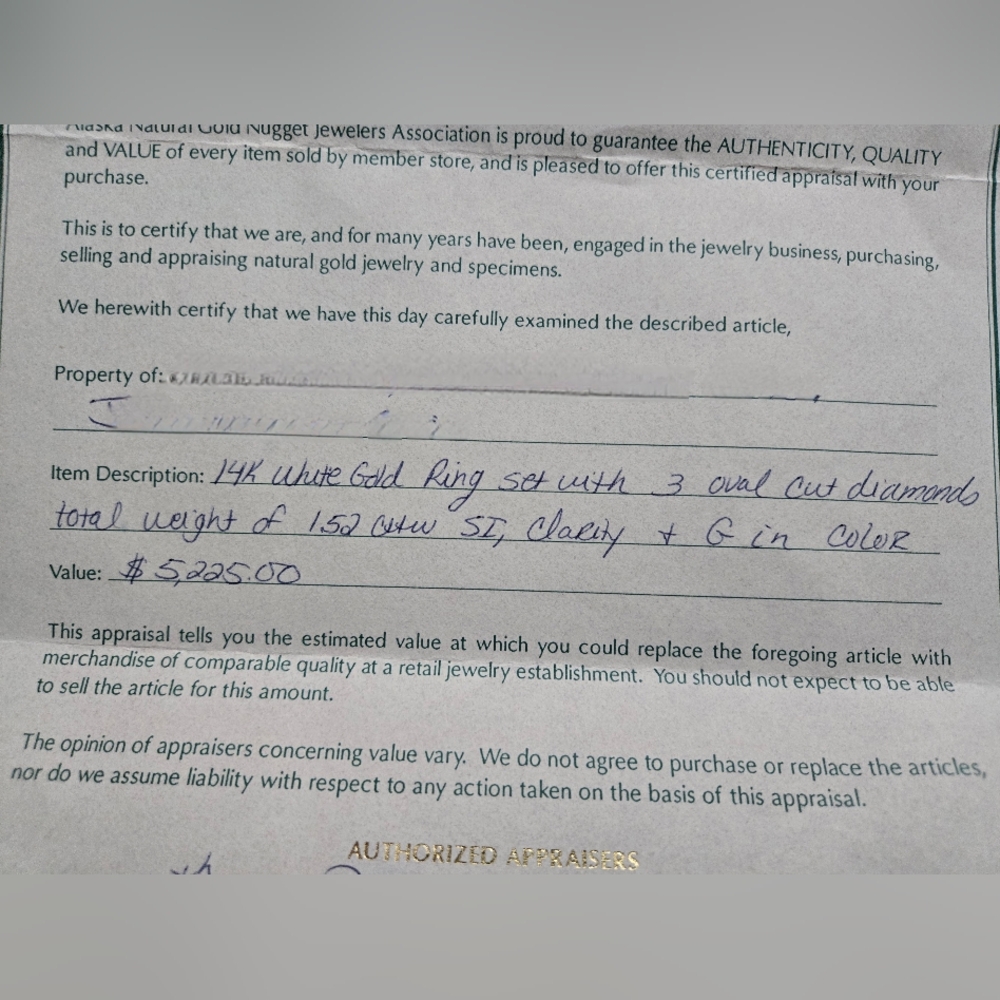 Alaska Natural Gold Nugget Jewelers Association is proud to guarantee the AUTHENTICITY, QUALITY
and VALUE of every item sold by member store, and is pleased to offer this certified appraisal with your
purchase.
This is to certify that we are, and for many years have been, engaged in the jewelry business, purchasing,
selling and appraising natural gold jewelry and specimens.
We herewith certify that we have this day carefully examined the described article,
Property of:
Item Description: 14K White Gold Ring set with 3 oval cut diamonds
total weight of 1.52 cttw SI, Clarity + G in COLOR
Value: $5,225.00
This appraisal tells you the estimated value at which you could replace the foregoing article with
merchandise of comparable quality at a retail jewelry establishment. You should not expect to be able
to sell the article for this amount.
The opinion of appraisers concerning value vary. We do not agree to purchase or replace the articles,
nor do we assume liability with respect to any action taken on the basis of this appraisal.
AUTHORIZED APPRAISERS